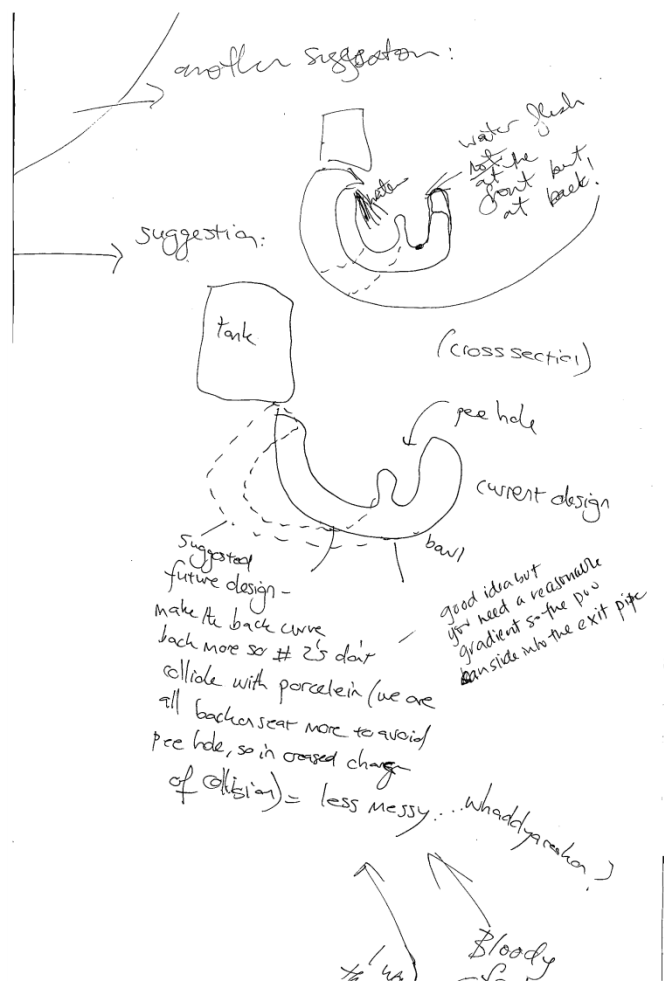 another suggestion:
water flush
not at the
front but,
at back!
water
suggestion:
tank
(cross section)
pee hole
current design
bowl
suggested
future design -
make the back curve
back more so # 2's don't
collide with porcelein (we are
all back on seat more to avoid
pee hole, so increased change
of collision) = less messy... whaddyareckon?
good idea but
you need a reasonable
gradient so the poo
can slide into the exit pipe
Bloody